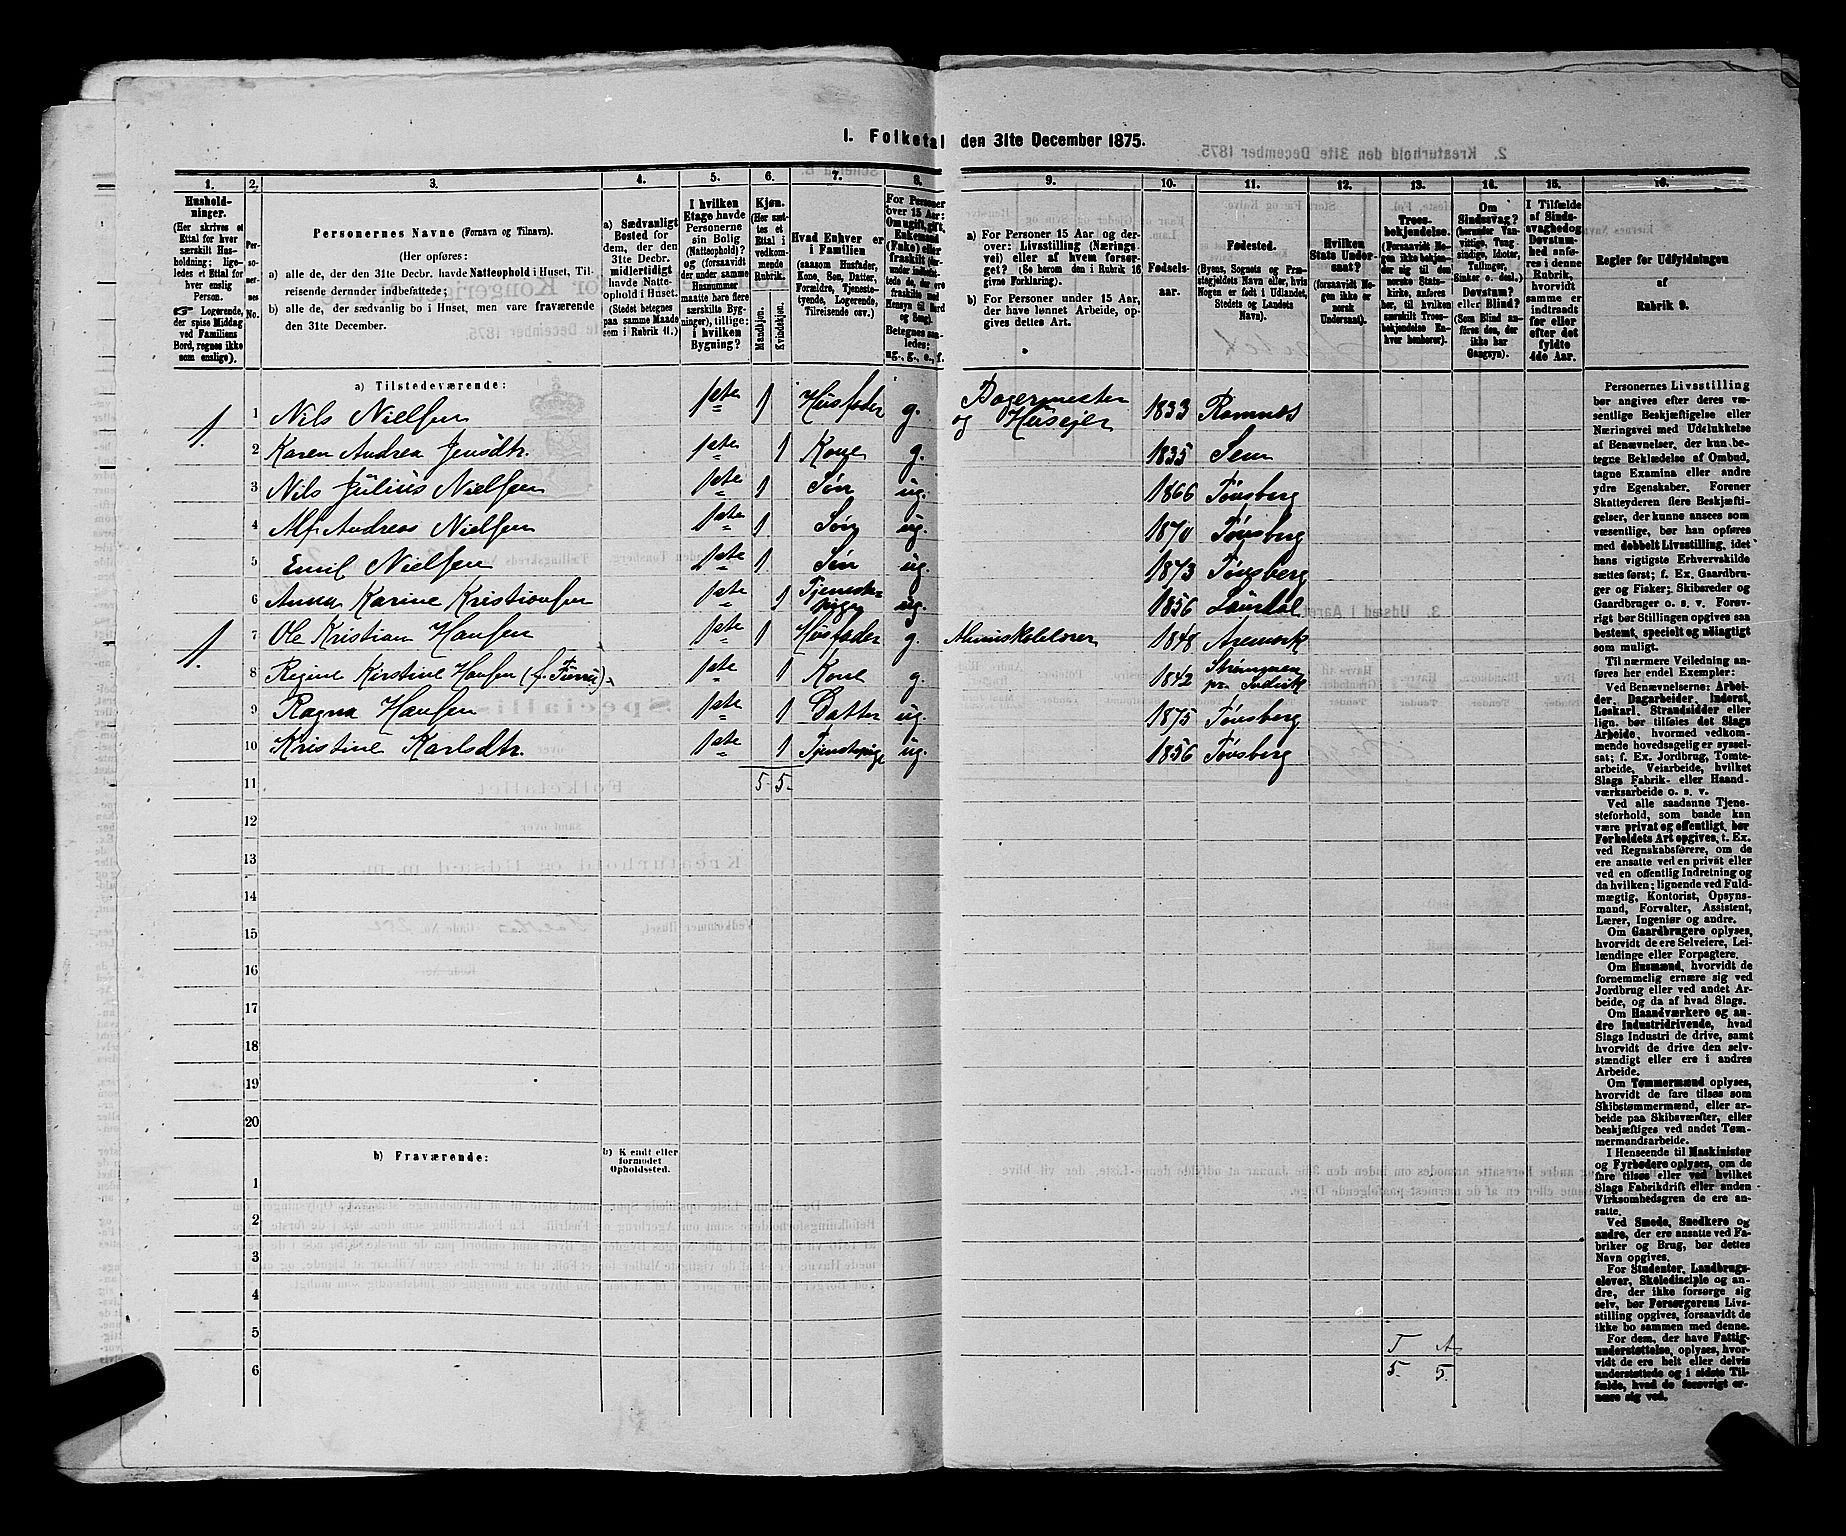 I. Folketal den 31te December 1875.
1.
2.
3.
4.
5.
6.
7.
8.
9.
10.
11.
12.
13.
14.
15.
16.
Hushold-
ninger.
(Her skrives et
Ettal for hver
særskilt Hus-
holdning; lige-
ledes et Ettal for
hver enslig
Person.
☞ Logerende,
der spise Middag
ved Familiens
Bord, regnes ikke
som enslige).
Per-
so-
ner-
nes
No.
Personernes Navne (Fornavn og Tilnavn).
(Her opføres:
a) alle de, der den 31te Decbr. havde Natteophold i Huset, Til-
reisende derunder indbefattede;
b) alle de, der sædvanlig bo i Huset, men vare fraværende
den 31te December.
a) Sædvanligt
Bosted for
dem, der den
31te Decbr.
midlertidigt
havde Natte-
ophold i Huset.
(Stedet betegnes
paa samme Maade
som i Rubrik 11.)
I hvilken
Etage havde
Personerne
sin Bolig
(Natteophold)?
og (forsaavidt
der under samme
Husnummer
maatte høre flere
særskilte Byg-
ninger), tillige:
i hvilken
Bygning?
Kjøn.
(Her sæt-
tes et
Ettal i
vedkom-
mende
Rubrik.
Mandkjøn.
Kvindekjøn.
Hvad Enhver er
i Familien
(saasom Husfader,
Kone, Søn, Datter,
Forældre, Tjeneste-
tyende, Logerende,
Tilreisende osv.)
For Personer
over 15 Aar:
Om ugift, gift,
Enkemand
(Enke) eller
fraskilt
Betegnes saa-
ledes:
ug., g., e., f.
a) For Personer 15 Aar og der-
over: Livsstilling (Nærings-
vei) eller af hvem forsør-
get? (Se herom den i Rubrik 16
givne Forklaring).
b) For Personer under 15 Aar,
der have lønnet Arbeide, op-
gives dettes Art.
Fødsels-
aar.
Fødested.
(Byens, Sognets og Præ-
stegjeldets Navn eller, hvis
Nogen er født i Udlandet,
Stedets og Landets
Navn).
Hvilken
Stats Under-
saat?
(forsaavidt No-
gen ikke er
norsk
Undersaat).
Troes-
bekjendelse.
(Forsaavidt No-
gen ikke bekjen-
der sig til den
norske Stats-
kirke, anføres
her, til hvilken
særskilt Troes-
bekjendelse En-
hver henhører).
Om
Sindssvag?
(herunder Van-
vittige, Tung-
sindige, Idioter,
Tullinger,
Sinker o. desl.)
Døvstum?
eller Blind?
(Som Blind an-
føres den, der
ikke har
Gangsyn).
I Tilfælde
af Sinds-
svaghed og
Døvstum-
hed anfø-
res i denne
Rubrik,
hvorvidt
samme er
indtraadt
før eller
efter det
fyldte
4de Aar.
Regler for Udfyldningen
af
Rubrik 9.
a) Tilstedeværende:
1 1 Nils Nielsen 1ste 1 Husfader g. Bagermester og Huseier 1833 Ramnæs
2 Karen Andrea Jensdtr. 1ste 1 Kone g. 1835 Sem
3 Nils Julius Nielsen 1ste 1 Søn ug. 1866 Tønsberg
4 Alf Andreas Nielsen 1ste 1 Søn ug. 1870 Tønsberg
5 Emil Nielsen 1ste 1 Søn ug. 1873 Tønsberg
6 Anna Karine Kristiansen 1ste 1 Tjeneste-pige ug. 1856 Laurdal
1 7 Ole Kristian Hansen 1ste 1 Husfader g. Almueskolelærer 1848 Aremark
8 Regine Kirstine Hansen 1ste 1 Kone g. 1842
9 Ragna Hansen 1ste 1 Datter ug. 1875 Tønsberg
10 Kristine Karlsdtr. 1ste 1 Tjenstepige ug. 1856 Tønsberg
11 5 5
12
13
14
15
16
17
18
19
20
b) Fraværende:
b) Kendt eller
formodet
Opholdssted.
1
2
3
4
5
6
T A
5. 5.
Personernes Livsstilling
bør angives efter deres væ-
sentlige Beskjæftigelse eller
Næringsvei med Udelukkelse
af Benævnelser, der kun be-
tegne Beklædelse af Ombud,
tagne Examina eller andre
ydre Egenskaber. Forener
Skatteyderen flere Beskjæfti-
gelser, der kunne ansees som
væsentlige, bør han opføres
med dobbelt Livsstilling, idet
hans vigtigste Erhvervskilde
sættes først; f. Ex. Gaardbru-
ger og Fisker; Skibsreder og
Gaardbruger o. s. v. Forøv-
rigt bør Stillingen opgives saa
bestemt, specielt og nøiagtigt
som muligt.
Til nærmere Veiledning an-
føres her endel Exempler:
Ved Benævnelserne: Arbei-
der, Dagarbeider, Inderst,
Løskarl, Strandsidder eller
lign. bør tilføies det Slags
Arbeide, hvormed vedkom-
mende hovedsagelig er syssel-
sat; f. Ex. Jordbrug, Tomte-
arbeide, Veiarbeide, hvilket
Slags Fabrik- eller Haand-
værksarbeide o. s. v.
Ved alle saadanne Tjene-
steforhold, som baade kan
være privat og offentligt, bør
Forholdets Art opgives, t. Ex.
ved Regnskabsførere, om de
ere ansatte ved en privat eller
ved en offentlig Indretning og
da hvilken; lignende ved Fuld-
mægtig, Kontorist, Opsyns-
mand, Forvalter, Assistent,
Lærer, Ingeniør og andre.
Om Gaardbrugere oplyses,
hvorvidt de ere Selveiere, Lei-
lændinge eller Forpagtere.
Om Husmænd, hvorvidt de
fornemmelig ernære sig ved
Jordbrug eller ved andet Ar-
beide, og da af hvad Slags.
Om Haandværkere og an-
dre Industridrivende, hvad
Slags Industri de drive, samt
hvorvidt de drive den selv-
stændigt eller ere i andres
Arbeide.
Om Tømmermænd oplyses,
hvorvidt de fare tilsøs som
Skibstømmermænd, eller ar-
beide paa Skibsværfter, eller
beskjæftiges ved andet Tøm-
mermandsarbeide.
I Henseende til Maskinister
og Fyrbødere oplyses, om de
fare tilsøs eller ved hvilket
Slags Fabrikdrift eller anden
Virksomhedsgren de ere an-
satte.
Ved Smede, Snedkere og
andre, der ere ansatte ved Fa-
briker og Brug, bør dettes
Navn opgives.
For Studenter, Landbrugs-
elever, Skoledisciple og an-
dre, der ikke forsørge sig
selv, bør Forsørgerens Livs-
stilling opgives, forsaavidt de
ikke bo sammen med denne.
For dem, der have Fattig-
understøttelse, oplyses, hvor-
vidt de ere helt eller delvis
understøttede og i sidste Til-
fælde, hvad de forøvrigt er-
nære sig ved.